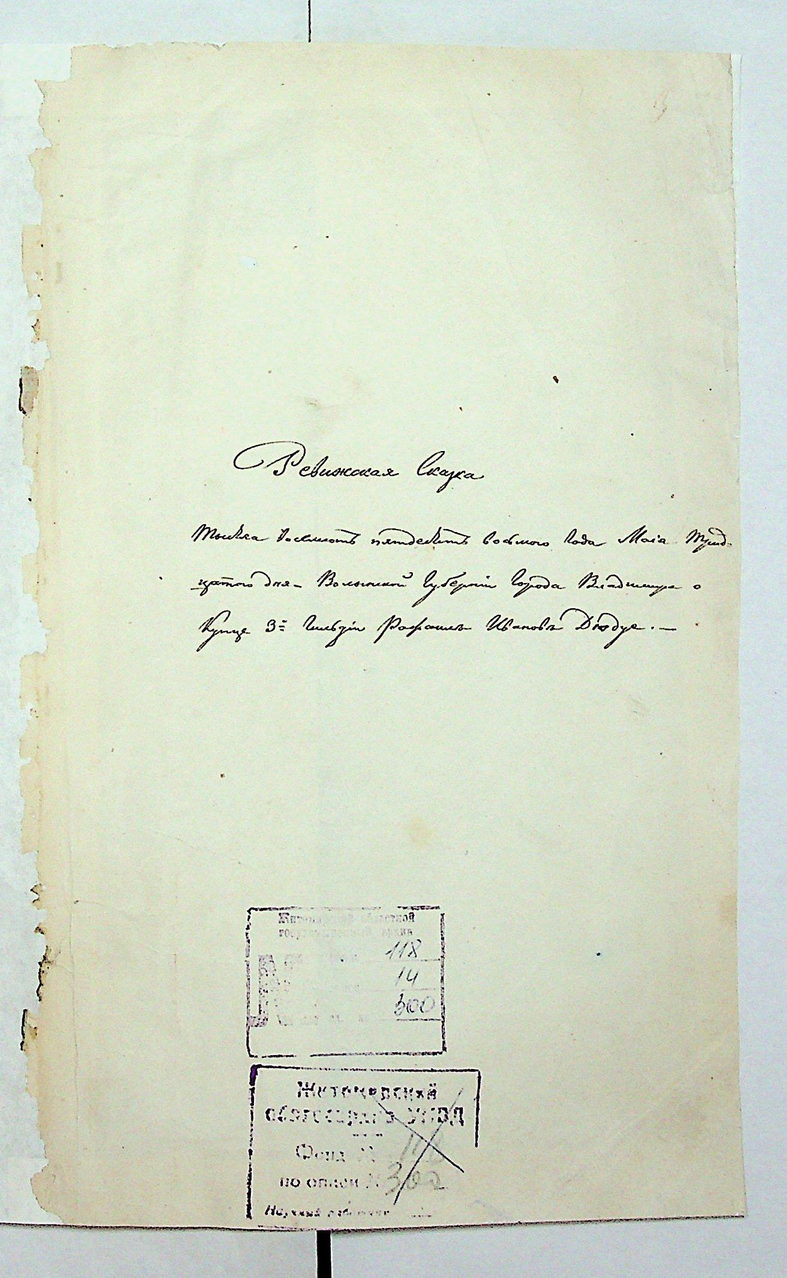 Ревижская Сказка
Тысяча восемьсотъ пятдесятъ восьмого Года Маія Трид-
цатого дня – Волынской Губерніи Города Владимира о
Купце 3й Гильдіи Ивановѣ
Житомирский областной
государственный архив
118
14
300
Житомирский
облгосархив УМВД
Фонд № 118
по описи № 300
Научный работник